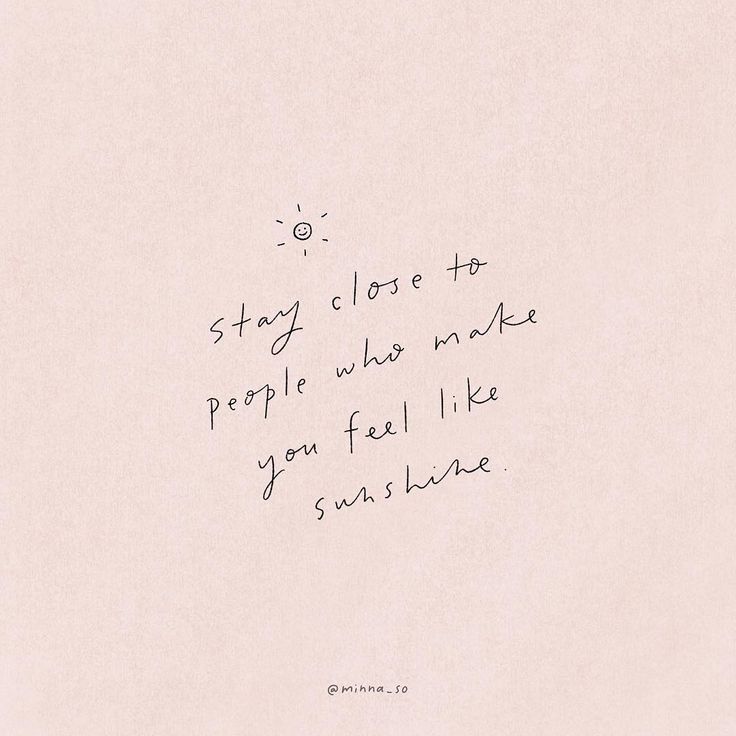 stay close to
people who make
you feel like
sunshine.
@minna_so